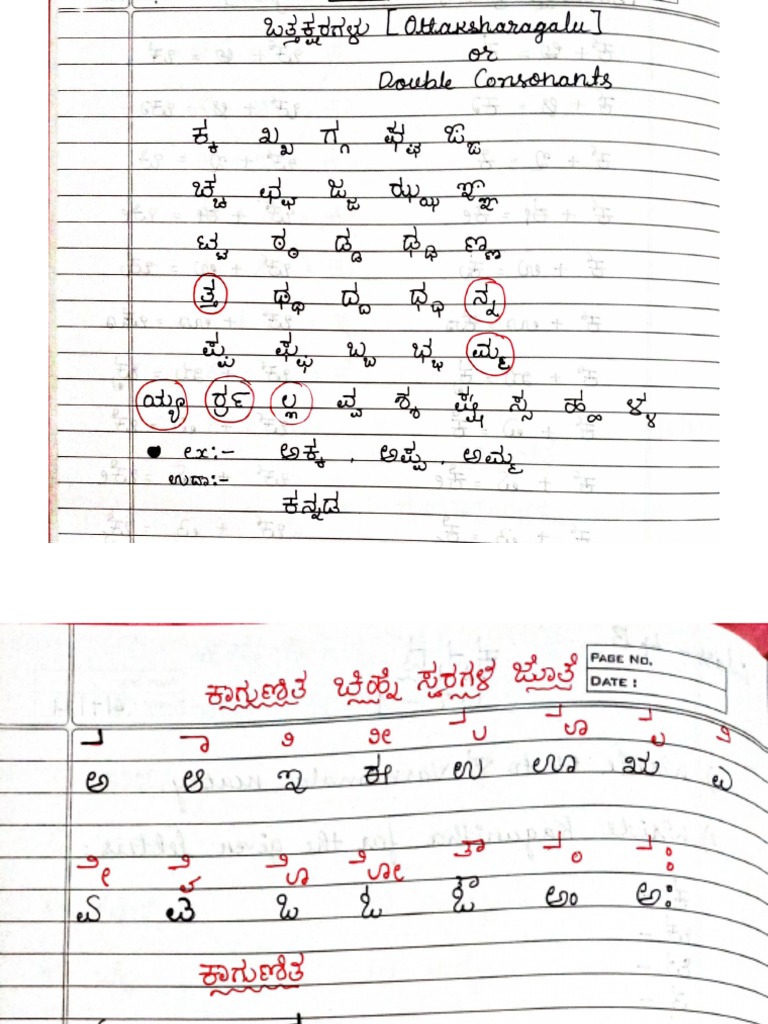 ಒತ್ತಕ್ಷರಗಳು [Ottaksharagalu]
or
Double Consonants
ಕ್ಕ ಖ್ಖ ಗ್ಗ ಘ್ಘ ಙ್ಙ
ಚ್ಚ ಛ್ಛ ಜ್ಜ ಝ್ಝ ಞ್ಞ
ಟ್ಟ ಠ್ಠ ಡ್ಡ ಢ್ಢ ಣ್ಣ
ತ್ತ ಥ್ಥ ದ್ದ ಧ್ಧ ನ್ನ
ಪ್ಪ ಫ್ಫ ಬ್ಬ ಭ್ಭ ಮ್ಮ
ಯ್ಯ ರ್ರ ಲ್ಲ ವ್ವ ಶ್ಶ ಷ್ಷ ಸ್ಸ ಹ್ಹ ಳ್ಳ
• ex:- ಅಕ್ಕ , ಅಪ್ಪ , ಅಮ್ಮ
ಉದಾ:-
ಕನ್ನಡ
PAGE NO.
DATE :
ಕಾಗುಣಿತ ಚಿಹ್ನೆ ಸ್ವರಗಳ ಜೊತೆ
ಅ ಆ ಇ ಈ ಉ ಊ ಋ ಎ
ಏ ಐ ಒ ಓ ಔ ಅಂ ಅಃ
ಕಾಗುಣಿತ